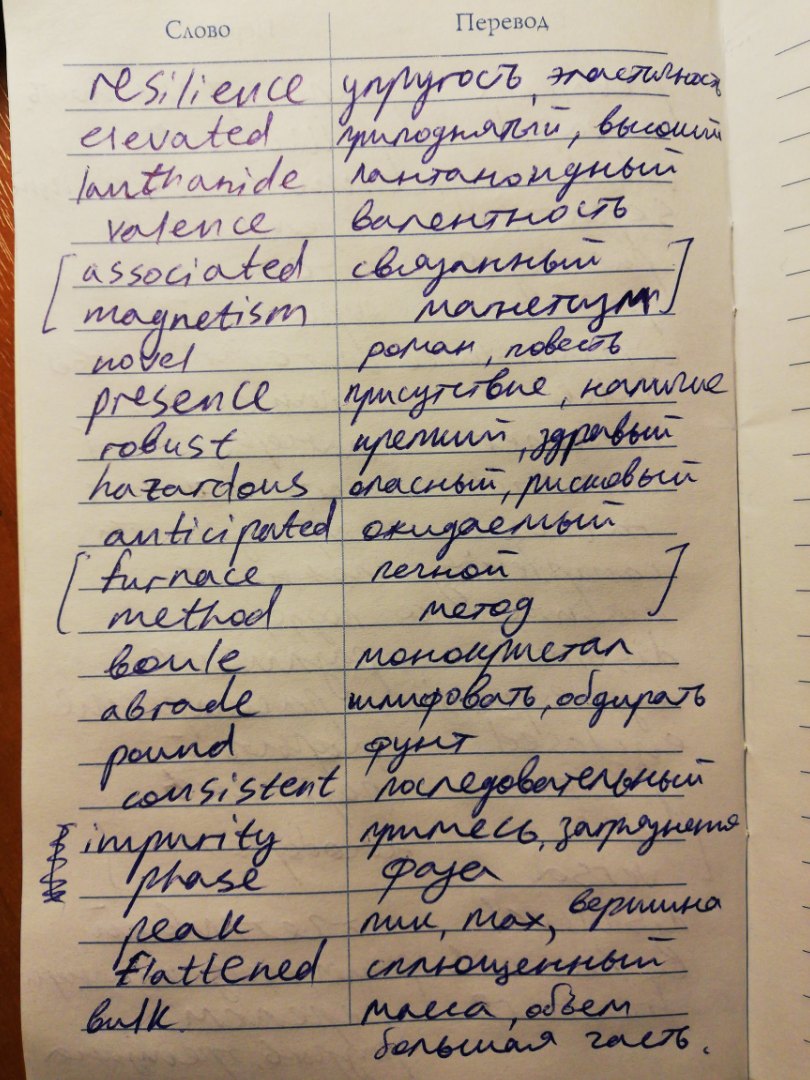 Слово Перевод
resilience упругость, эластичность
elevated приподнятый, высокий
lanthanide лантаноидный
valence валентность
[ associated связанный ]
[ magnetism магнетизм ]
novel роман, повесть
presence присутствие, наличие
robust крепкий, здравый
hazardous опасный, рисковый
anticipated ожидаемый
[ furnace печной ]
[ method метод ]
boule монокристал
abrade шлифовать, обдирать
pound фунт
consistent последовательный
impurity примесь, загрязнения
phase фаза
peak пик, max, вершина
flattened сплющенный
bulk масса, объем
большая часть.